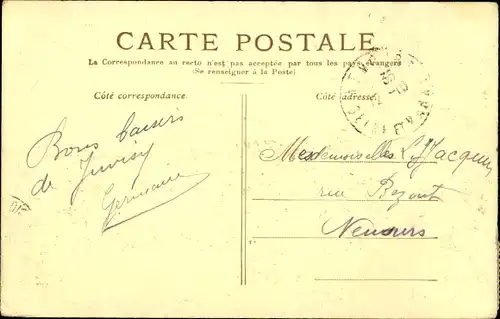 CARTE POSTALE
La Correspondance au recto n'est pas acceptée par tous les pays étrangers
(Se renseigner à la Poste)
Côté correspondance.
Côté adresse.
Bons baisers
de Juvisy
Germaine
Mesdemoiselles Jacquin
rue Bezout
Nemours